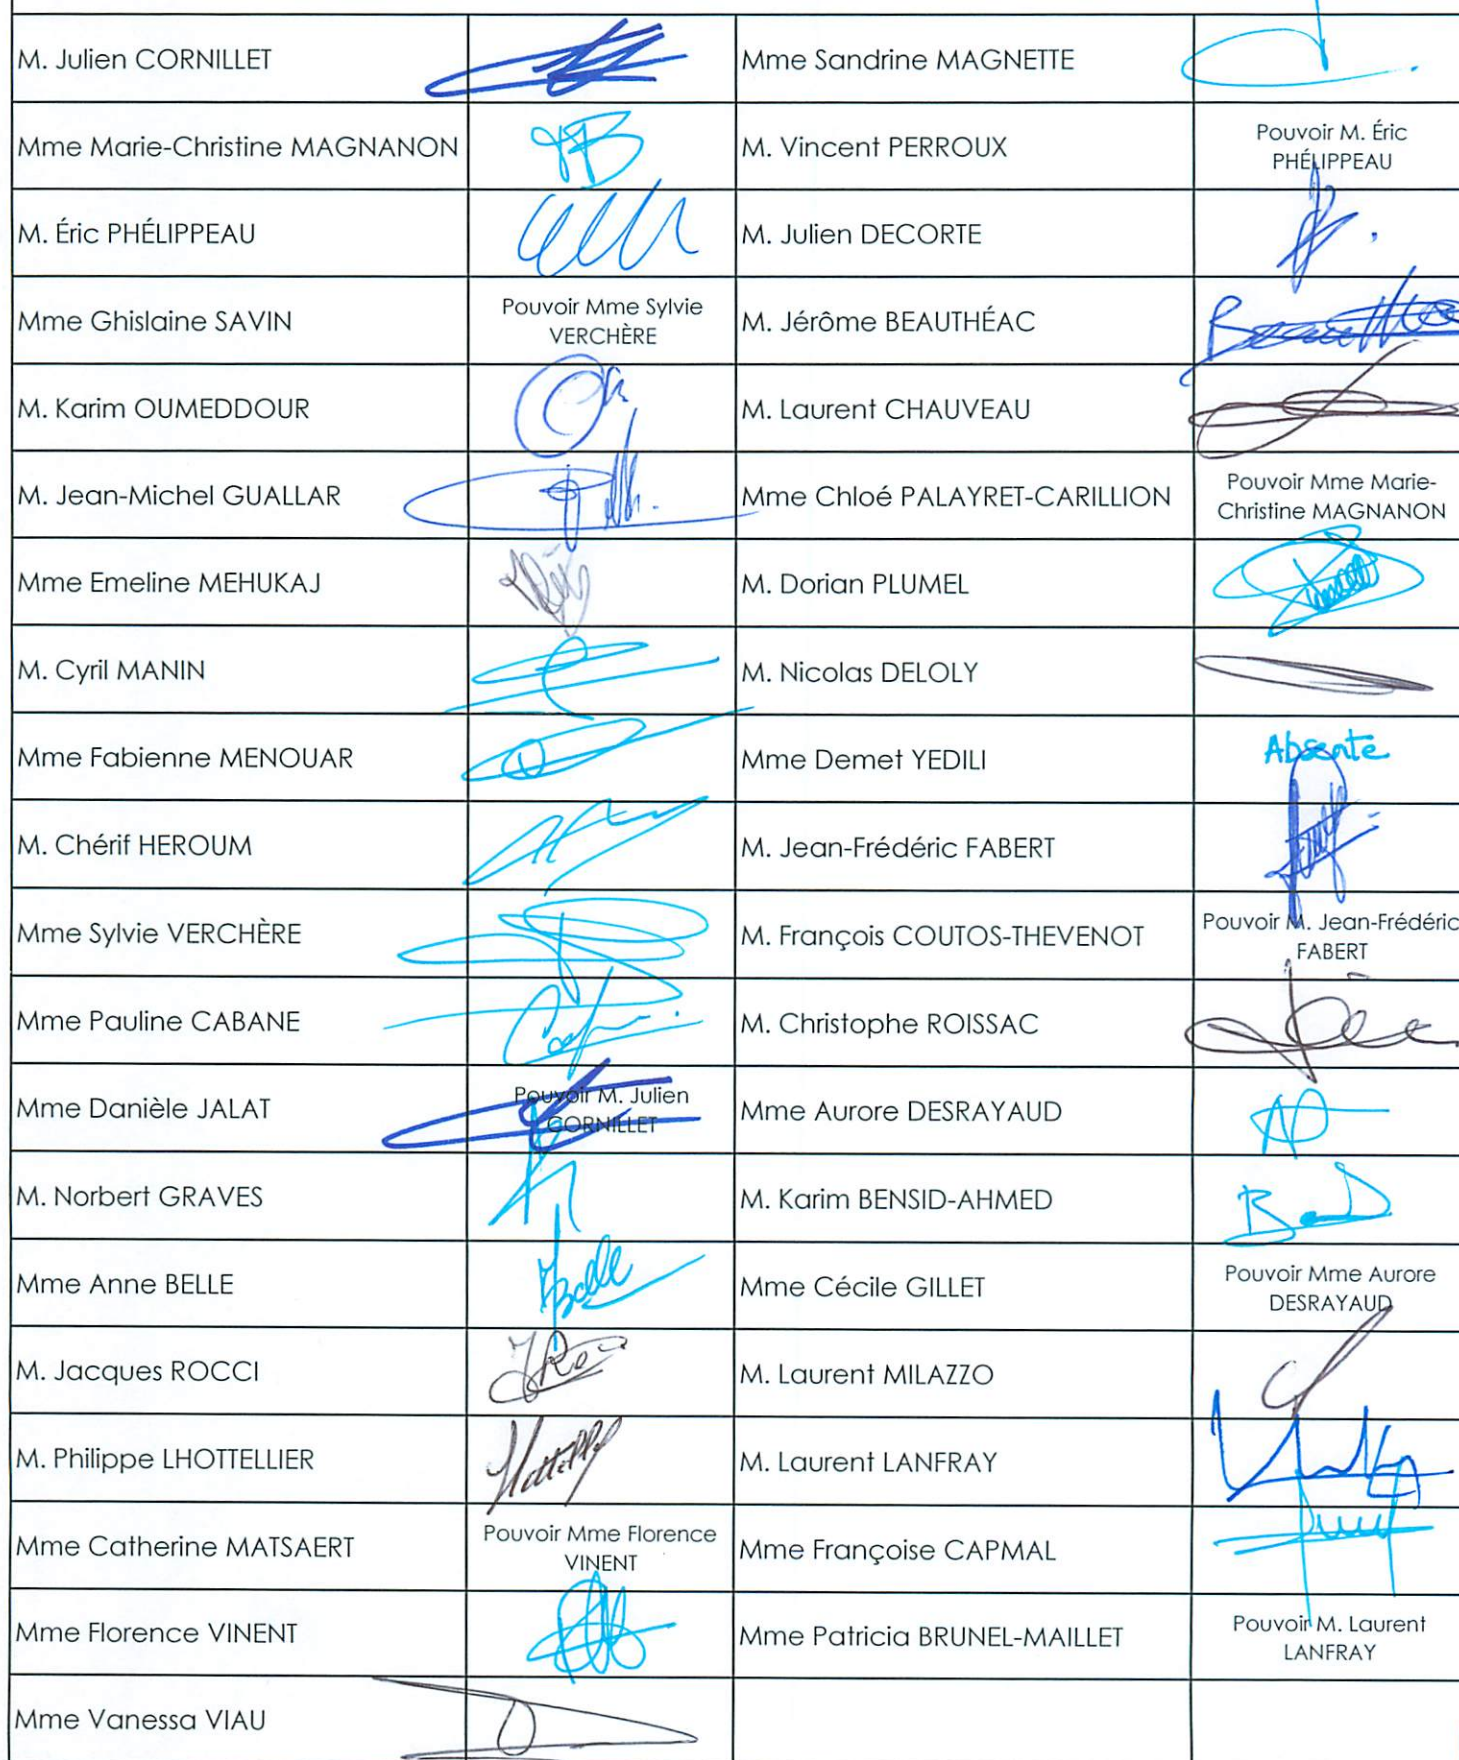 M. Julien CORNILLET
Mme Sandrine MAGNETTE
Mme Marie-Christine MAGNANON
M. Vincent PERROUX
Pouvoir M. Éric
PHÉLIPPEAU
M. Éric PHÉLIPPEAU
M. Julien DECORTE
Mme Ghislaine SAVIN
Pouvoir Mme Sylvie
VERCHÈRE
M. Jérôme BEAUTHÉAC
M. Karim OUMEDDOUR
M. Laurent CHAUVEAU
M. Jean-Michel GUALLAR
Mme Chloé PALAYRET-CARILLION
Pouvoir Mme Marie-
Christine MAGNANON
Mme Emeline MEHUKAJ
M. Dorian PLUMEL
M. Cyril MANIN
M. Nicolas DELOLY
Mme Fabienne MENOUAR
Mme Demet YEDILI
Absente
M. Chérif HEROUM
M. Jean-Frédéric FABERT
Mme Sylvie VERCHÈRE
M. François COUTOS-THEVENOT
Pouvoir M. Jean-Frédéric
FABERT
Mme Pauline CABANE
M. Christophe ROISSAC
Mme Danièle JALAT
Pouvoir M. Julien
CORNILLET
Mme Aurore DESRAYAUD
M. Norbert GRAVES
M. Karim BENSID-AHMED
Mme Anne BELLE
Mme Cécile GILLET
Pouvoir Mme Aurore
DESRAYAUD
M. Jacques ROCCI
M. Laurent MILAZZO
M. Philippe LHOTTELLIER
M. Laurent LANFRAY
Mme Catherine MATSAERT
Pouvoir Mme Florence
VINENT
Mme Françoise CAPMAL
Mme Florence VINENT
Mme Patricia BRUNEL-MAILLET
Pouvoir M. Laurent
LANFRAY
Mme Vanessa VIAU